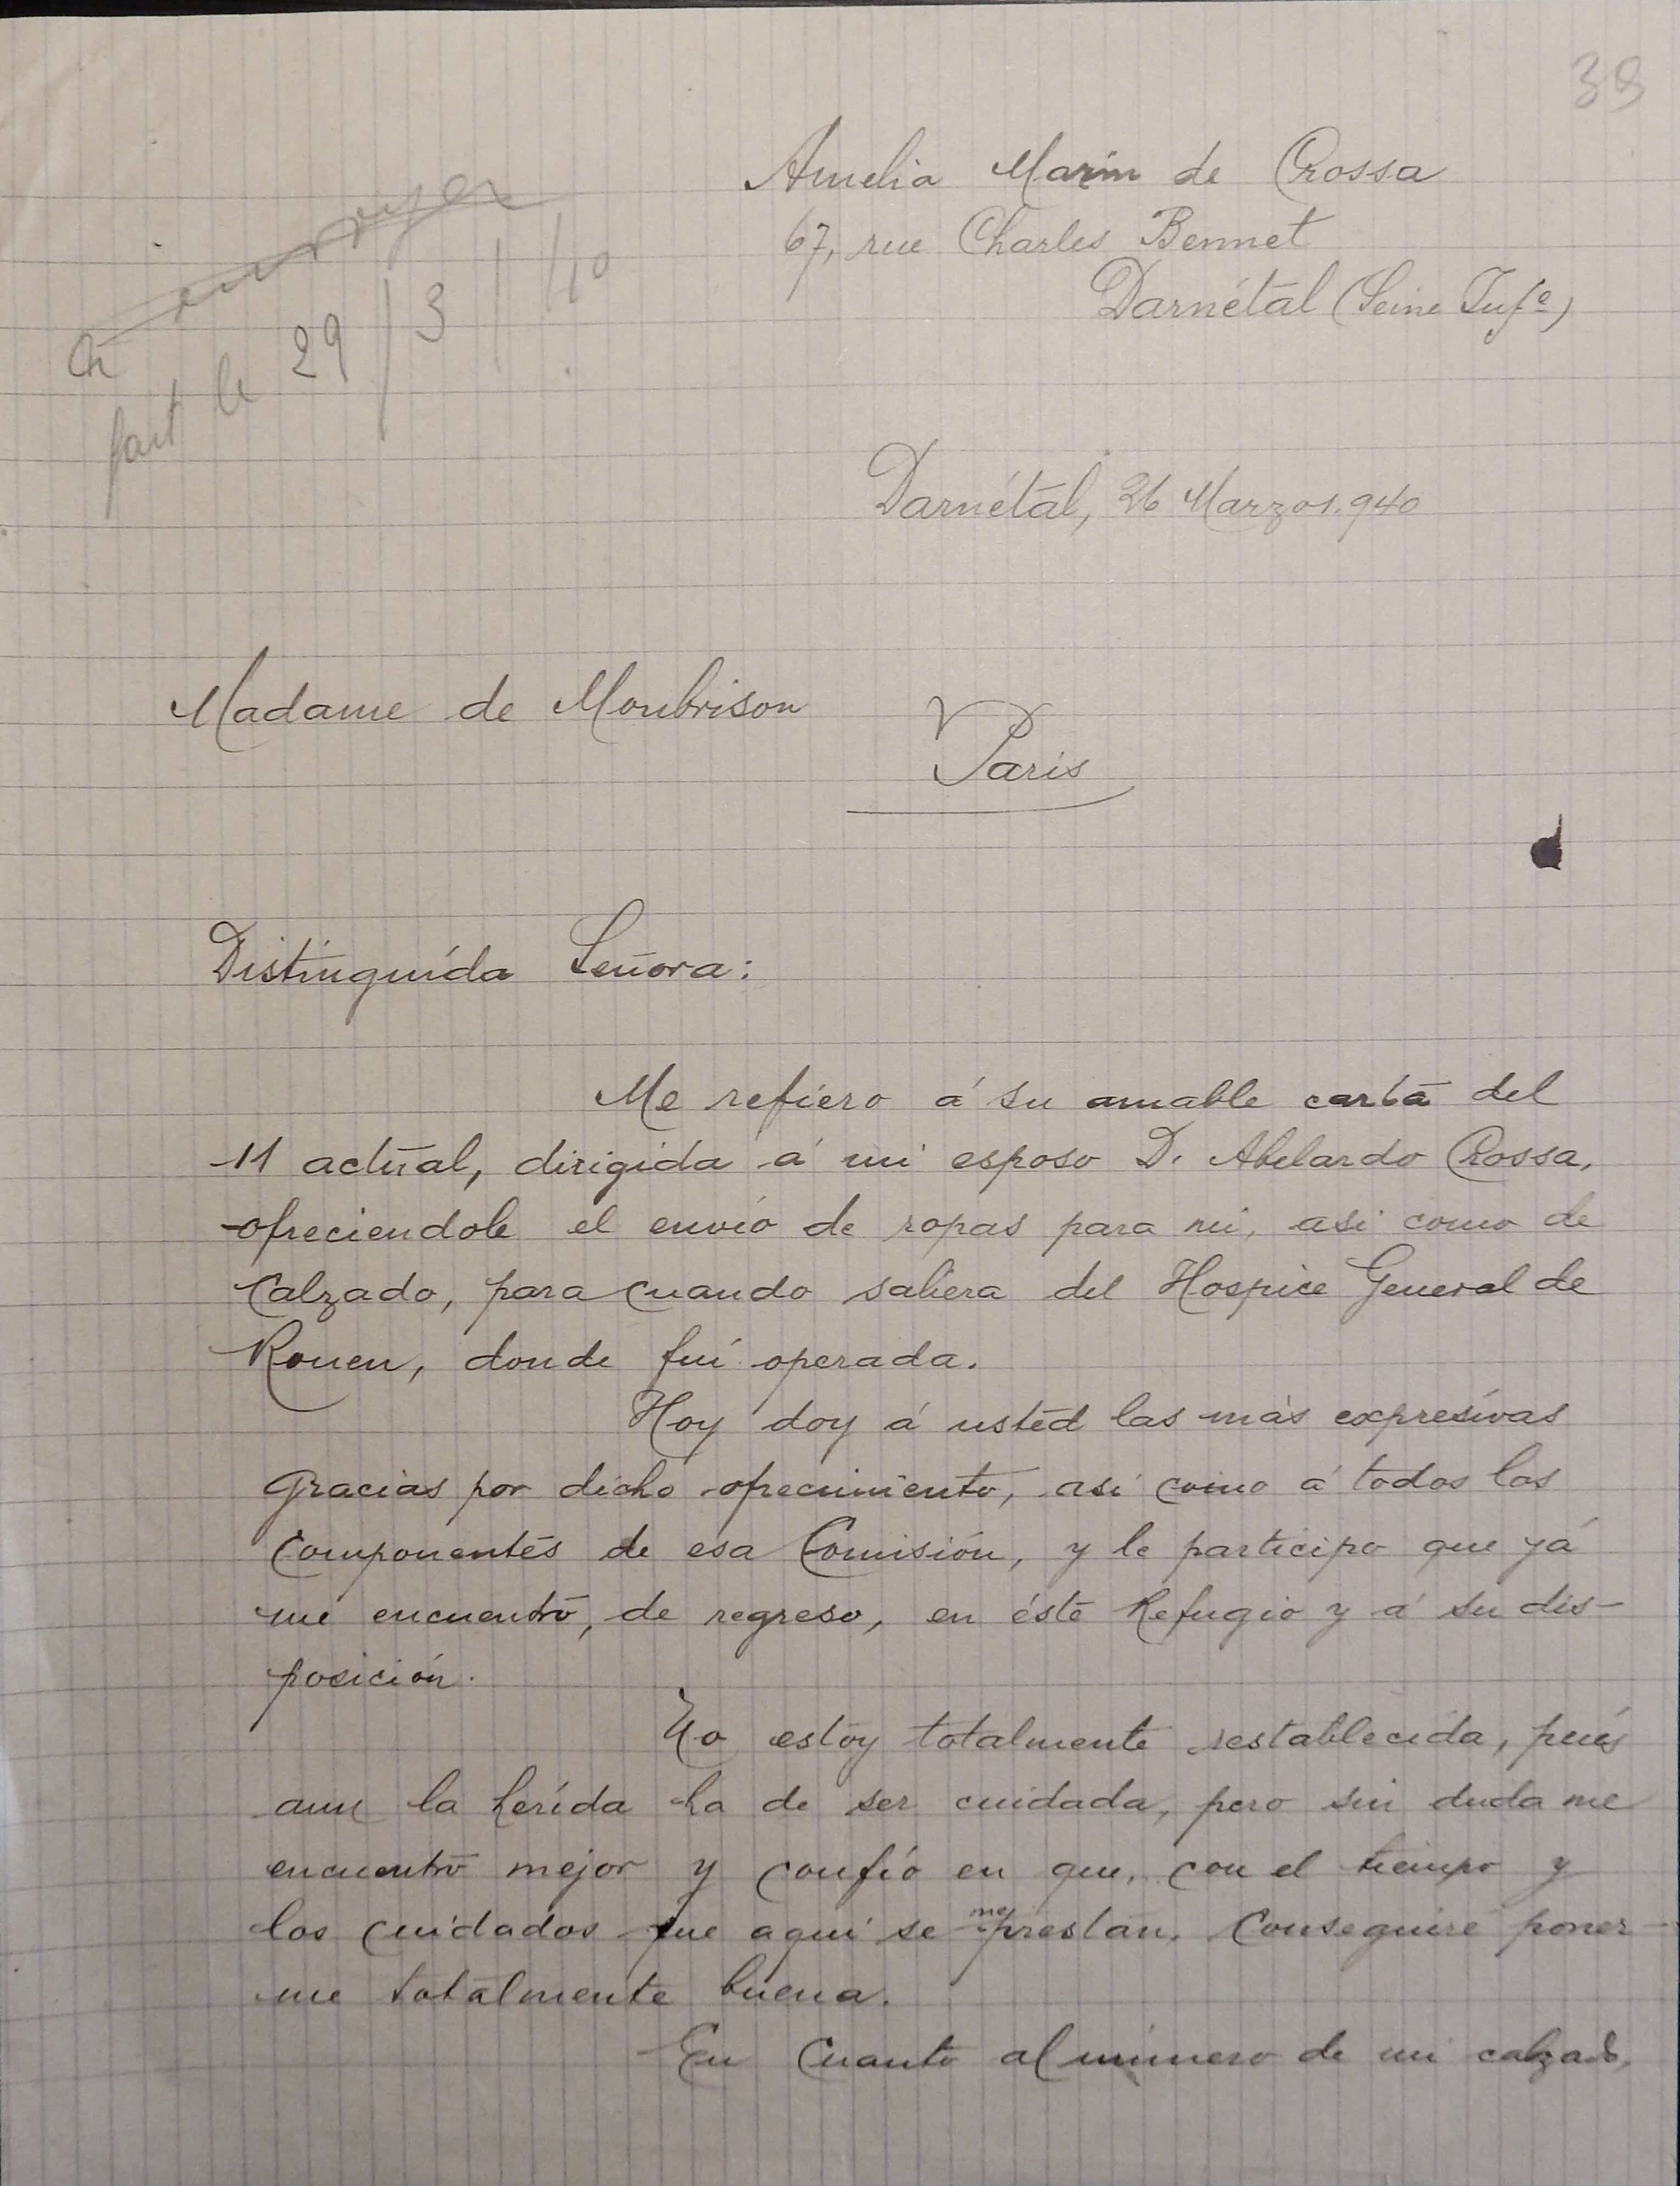 38
Amelia Marin de Crossa
67, rue Charles Bennet
Darnétal (Seine Infe)
envoyer
fait le 29/3/40
Darnétal, 26 Marzo 1.940
Madame de Monbrison
Paris
Distinguída Señora:
Me refiero á su amable carta del
11 actual, dirigida á mi esposo D. Abelardo Crossa,
ofreciendole el envio de ropas para mi, asi como de
Calzado, para cuando saliera del Hospice General de
Rouen, donde fuí operada.
Hoy doy á usted las más expresívas
gracias por dicho ofrecimiento, asi como á todos los
Componentes de esa Comisión, y le participo que yá
me encuentro, de regreso, en éste Refugio y á su dis-
posición.
No estoy totalmente restablecida, pués
aun la herída ha de ser cuidada, pero sin duda me
encuentro mejor y confío en que, con el tiempo y
los cuidados que aqui se me prestan, Conseguire poner-
me totalmente buena.
En Cuanto al número de mi calzado,